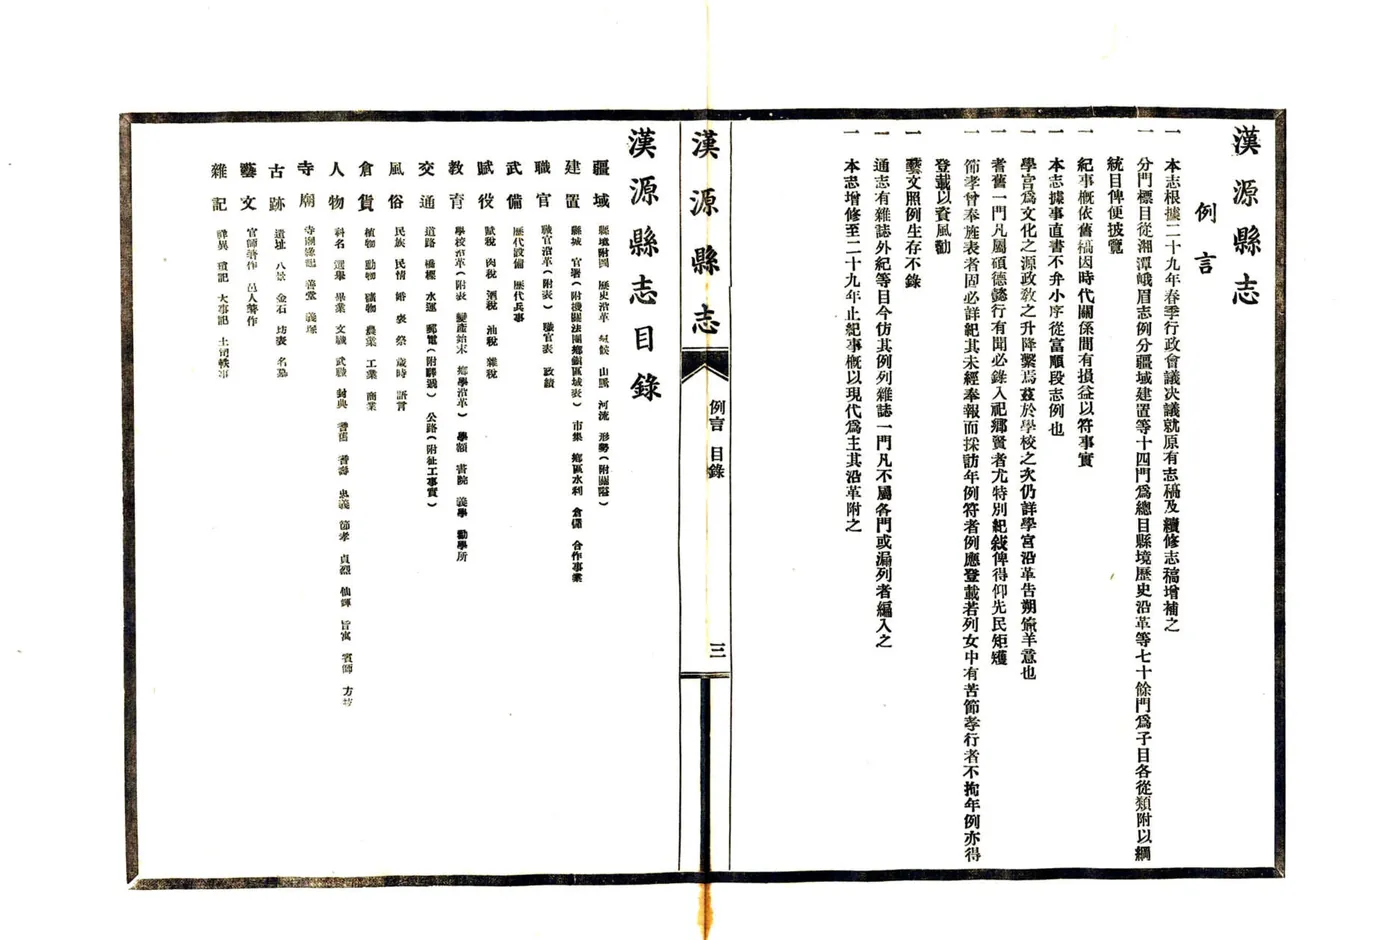 漢源縣志
例言
一 本志根據二十九年春季行政會議決議就原有志稿及續修志稿增補之
一 分門標目從湘潭峨眉志例分疆域建置等十四門為總目縣境歷史沿革等七十餘門為子目各從類附以綱
統目俾便披覽
一 紀事概依舊稿因時代關係間有損益以符事實
一 本志據事直書不弁小序從富順段志例也
一 學宮為文化之源政教之升降繫焉茲於學校之次仍詳學宮沿革告朔餼羊意也
一 耆舊一門凡屬碩德懿行有聞必錄入祀鄉賢者尤特別紀敍俾得仰先民矩矱
一 節孝曾奉旌表者固必詳紀其未經奉報而採訪年例符者例應登載若列女中有苦節孝行者不拘年例亦得
登載以資風勸
一 藝文照例生存不錄
一 通志有雜誌外紀等目今仿其例列雜誌一門凡不屬各門或漏列者編入之
一 本志增修至二十九年止紀事概以現代為主其沿革附之
漢源縣志
例言 目錄
三
漢源縣志目錄
疆域 縣境附圖 歷史沿革 氣候 山脈 河流 形勢(附關隘)
建置 縣城 官署(附機關法團鄉鎮區城表) 市集 鄉區水利 倉儲 合作事業
職官 職官沿革(附表) 職官表 政績
武備 歷代設備 歷代兵事
賦役 賦稅 肉稅 酒稅 油稅 雜稅
教育 學校沿革(附表 變產始末 鄉學沿革) 學額 書院 義學 勸學所
交通 道路 橋樑 水運 郵電(附驛遞) 公路(附征工事實)
風俗 民族 民情 婚 喪 祭 歲時 語言
食貨 植物 動物 礦物 農業 工業 商業
人物 科名 選舉 畢業 文職 武職 封典 耆舊 耆壽 忠義 節孝 貞烈 仙釋 旨寓 賓師 方技
寺廟 寺廟緣起 善堂 義塚
古跡 遺址 八景 金石 坊表 名墓
藝文 官師著作 邑人著作
雜記 祥異 瑣記 大事記 土司軼事